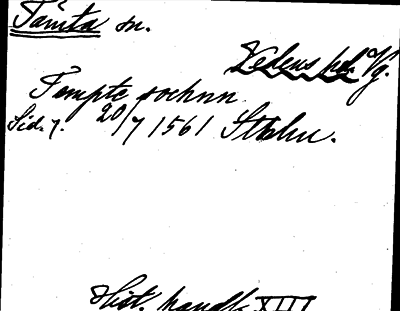 Tämta sn.
Kedens hd. Vg.
Tempte sochnn
Sid. 7. 20/7 1561 Sthlm.
Hist. handl. XIII